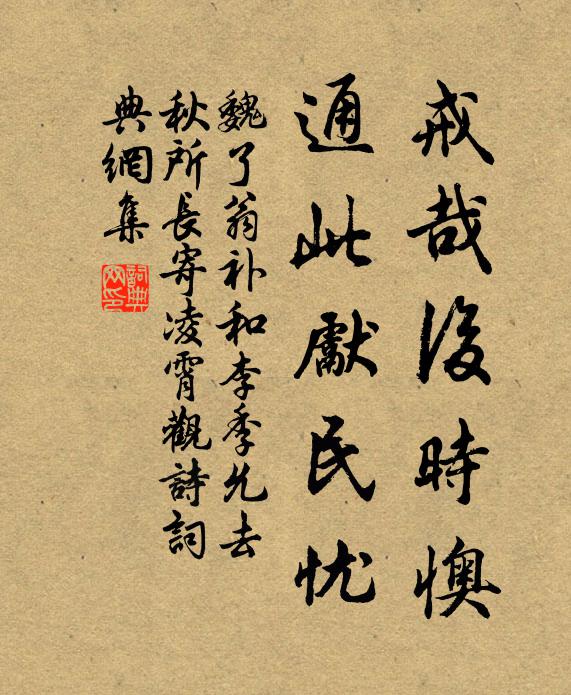 戒哉後時懊
通此獻民忱
魏了翁补和李季允去
秋所長寄凌霄觀詩詞
典網集
詞典网印